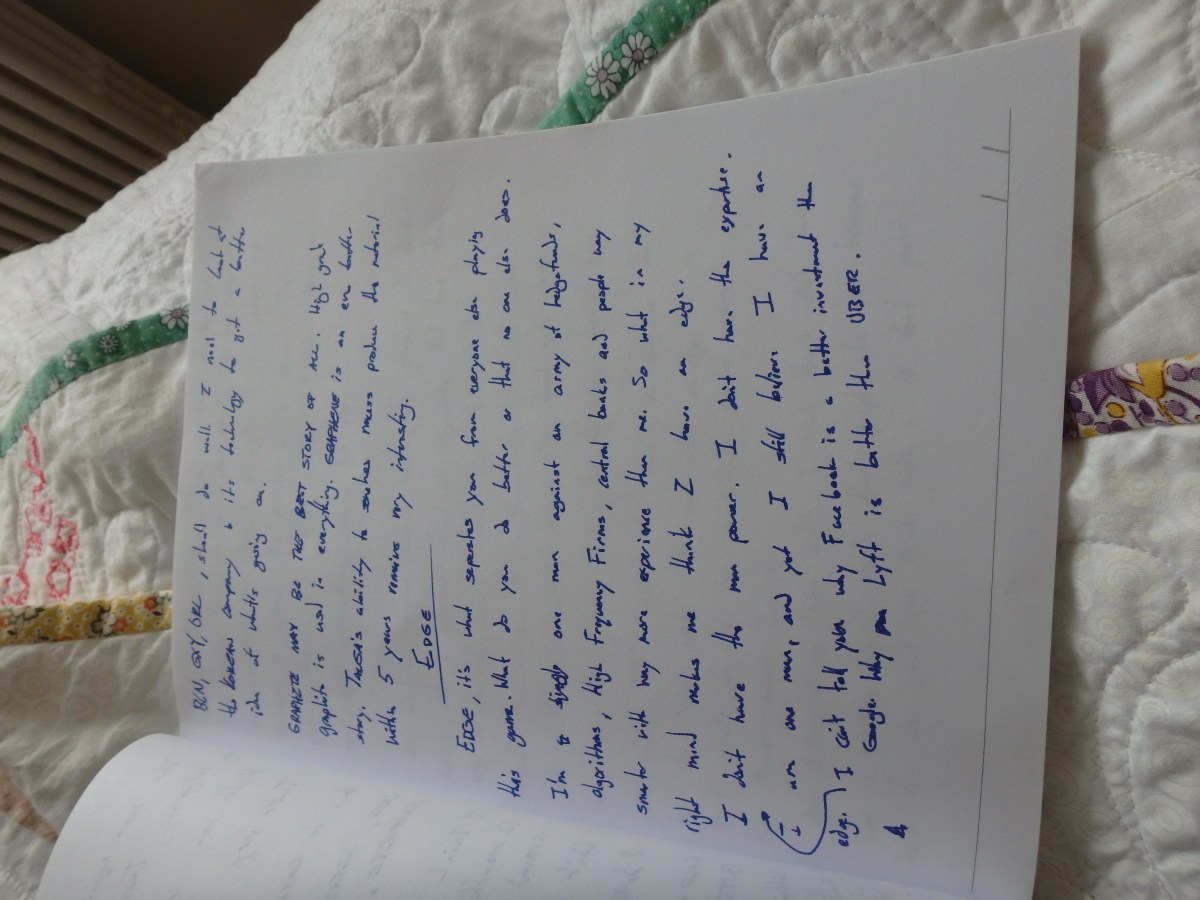 BCN, GXY, ORE, should do well I need to look at
the KOREAN company & its technology to get a better
idea of what's going on.
GRAPHITE MAY BE THE BEST STORY OF ALL. High grad
graphite is used in everything. GRAPHENE is an even better
story. TALGA's ability to mass produce the material
within 5 years remains my intresting.
EDGE
EDGE, it's what separates you from everyone else playing
this game. What do you do better or that no one else does.
I'm one man against an army of hedgefunds,
algorithms, High Frequency Firms, central banks and people way
smarter with way more experience than me. So what in my
right mind makes me think I have an edge.
I don't have the man power. I don't have the expertise.
I am one man, and yet I still believe I have an
edge. I can't tell you why Facebook is a better investment than
Google. Why Lyft is better than UBER.